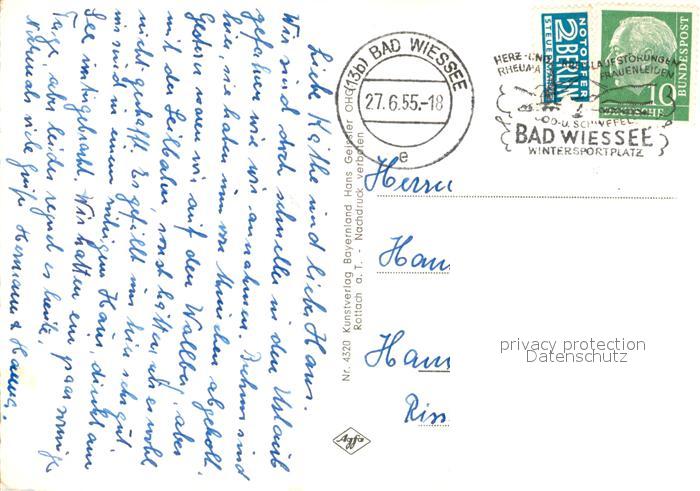 Liebe Käthe und lieber Hans.
Wir sind doch schneller in den Urlaub
gefahren wie wir annahmen. Diehms sind
hier, sie haben uns von München abgeholt.
Gestern waren wir auf den Wallberg, aber
mit der Seilbahn, sonst hätten wir es wohl
nicht geschafft. Es gefällt uns hier sehr gut,
wir sind in einem ruhigen Haus, direkt am
See untergebracht. Wir hatten ein paar sonnige
Tage, aber leider regnet es heute.
Nochmals viele Grüße Hermann & Hanna.
Nr. 4320 Kunstverlag Bayernland Hans Geissler OHG
Rottach a. T. - Nachdruck verboten
(13b) BAD WIESSEE
27.6.55.-18
e
NOTOPFER
2 BERLIN
STEUERMARKE
DEUTSCHE
BUNDESPOST
10
HERZ- UND KREISLAUFSTÖRUNGEN
RHEUMA FRAUENLEIDEN
JOD-U. SCHWEFEL
BAD WIESSEE
WINTERSPORTPLATZ
Herrn
Han
Ham
Riss
privacy protection
Datenschutz
Agfa